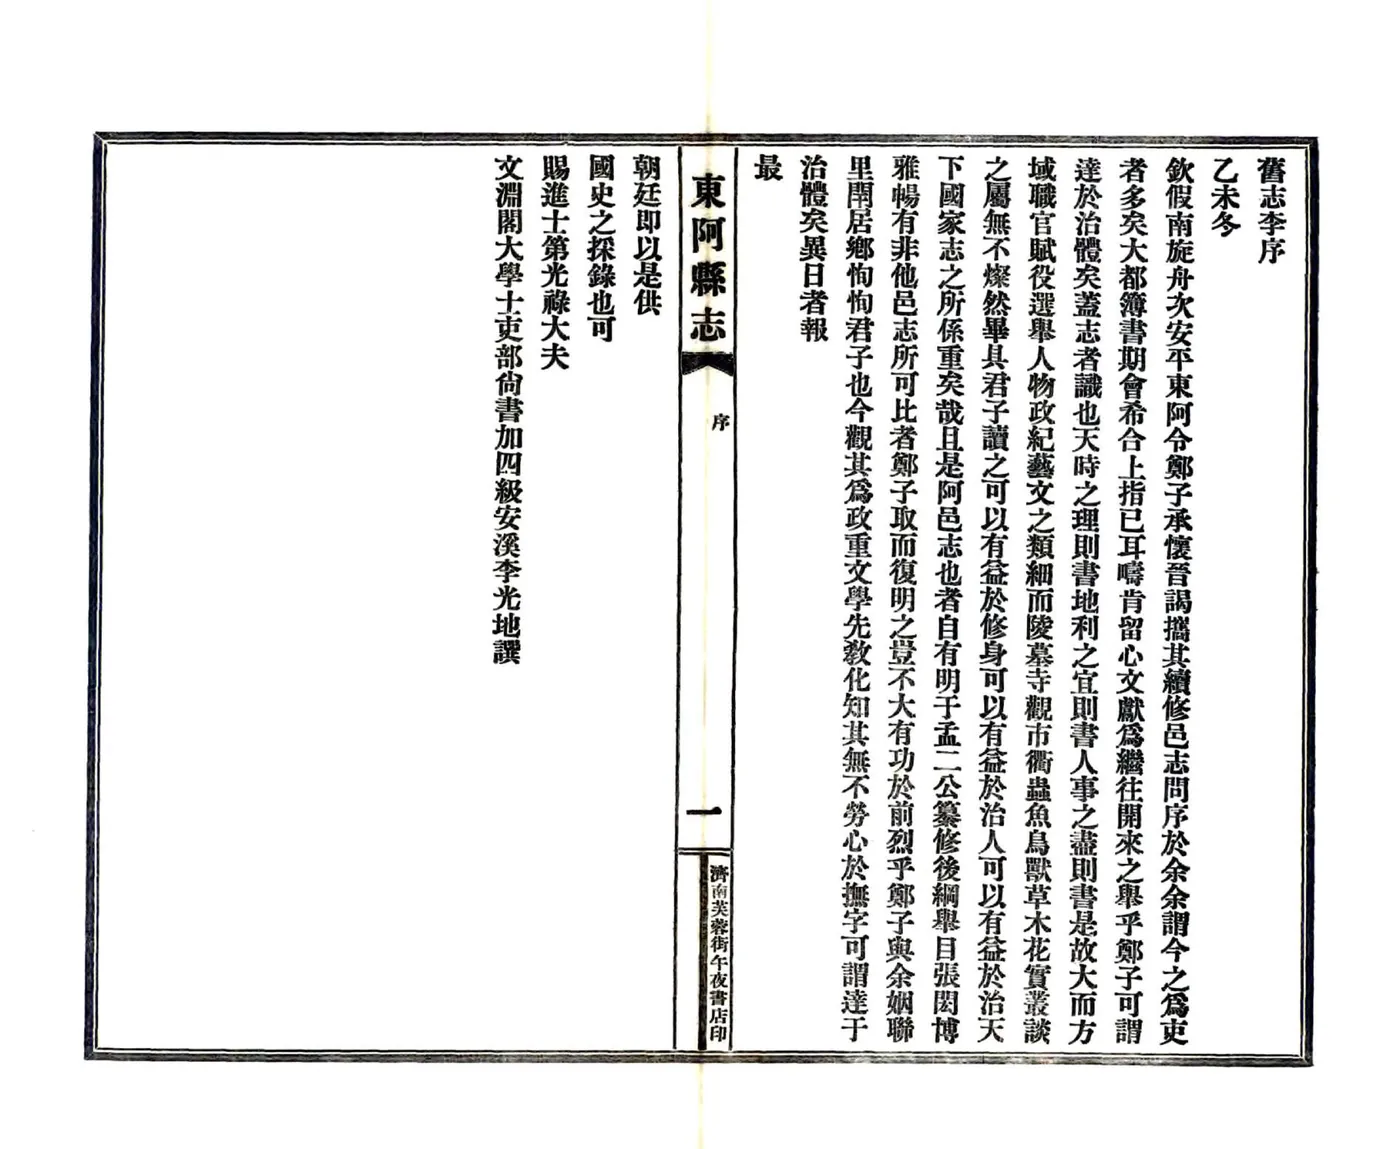 舊志李序
乙未冬
欽假南旋舟次安平東阿令鄭子承懷晉謁攜其續修邑志問序於余余謂今之爲吏
者多矣大都簿書期會希合上指已耳疇肯留心文獻爲繼往開來之舉乎鄭子可謂
達於治體矣蓋志者識也天時之理則書地利之宜則書人事之盡則書是故大而方
域職官賦役選舉人物政紀藝文之類細而陵墓寺觀市衢蟲魚鳥獸草木花實叢談
之屬無不燦然畢具君子讀之可以有益於修身可以有益於治人可以有益於治天
下國家志之所係重矣哉且是阿邑志也者自有明于孟二公纂修後綱舉目張閎博
雅暢有非他邑志所可比者鄭子取而復明之豈不大有功於前烈乎鄭子與余姻聯
里閈居鄉恂恂君子也今觀其爲政重文學先敎化知其無不勞心於撫字可謂達于
治體矣異日者報
最
東阿縣志
序
一
濟南芙蓉街午夜書店印
朝廷即以是供
國史之採錄也可
賜進士第光祿大夫
文淵閣大學士吏部尙書加四級安溪李光地譔